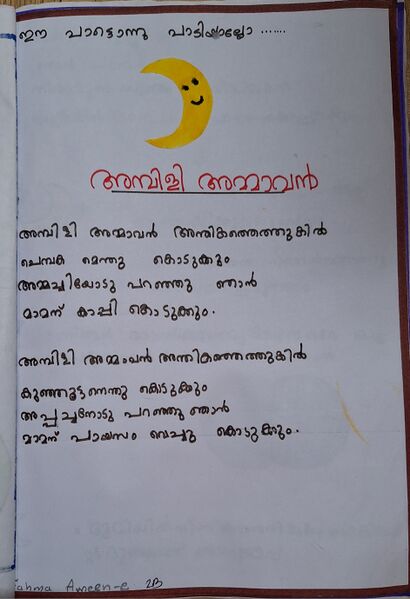 ഈ പാട്ടൊന്നു പാടിയാല്ലോ .......
അമ്പിളി അമ്മാവൻ
അമ്പിളി അമ്മാവൻ അന്തികത്തെത്തുകിൽ
ചെമ്പക മെന്തു കൊടുക്കും
അമ്മച്ചിയോടു പറഞ്ഞു ഞാൻ
മാമന് കാപ്പി കൊടുക്കും.
അമ്പിളി അമ്മാവൻ അന്തികത്തെത്തുകിൽ
കുഞ്ഞൂട്ടനെന്തു കൊടുക്കും
അപ്പച്ചനോടു പറഞ്ഞു ഞാൻ
മാമന് പായസം വെച്ചു കൊടുക്കും.
Ameen-e 2B